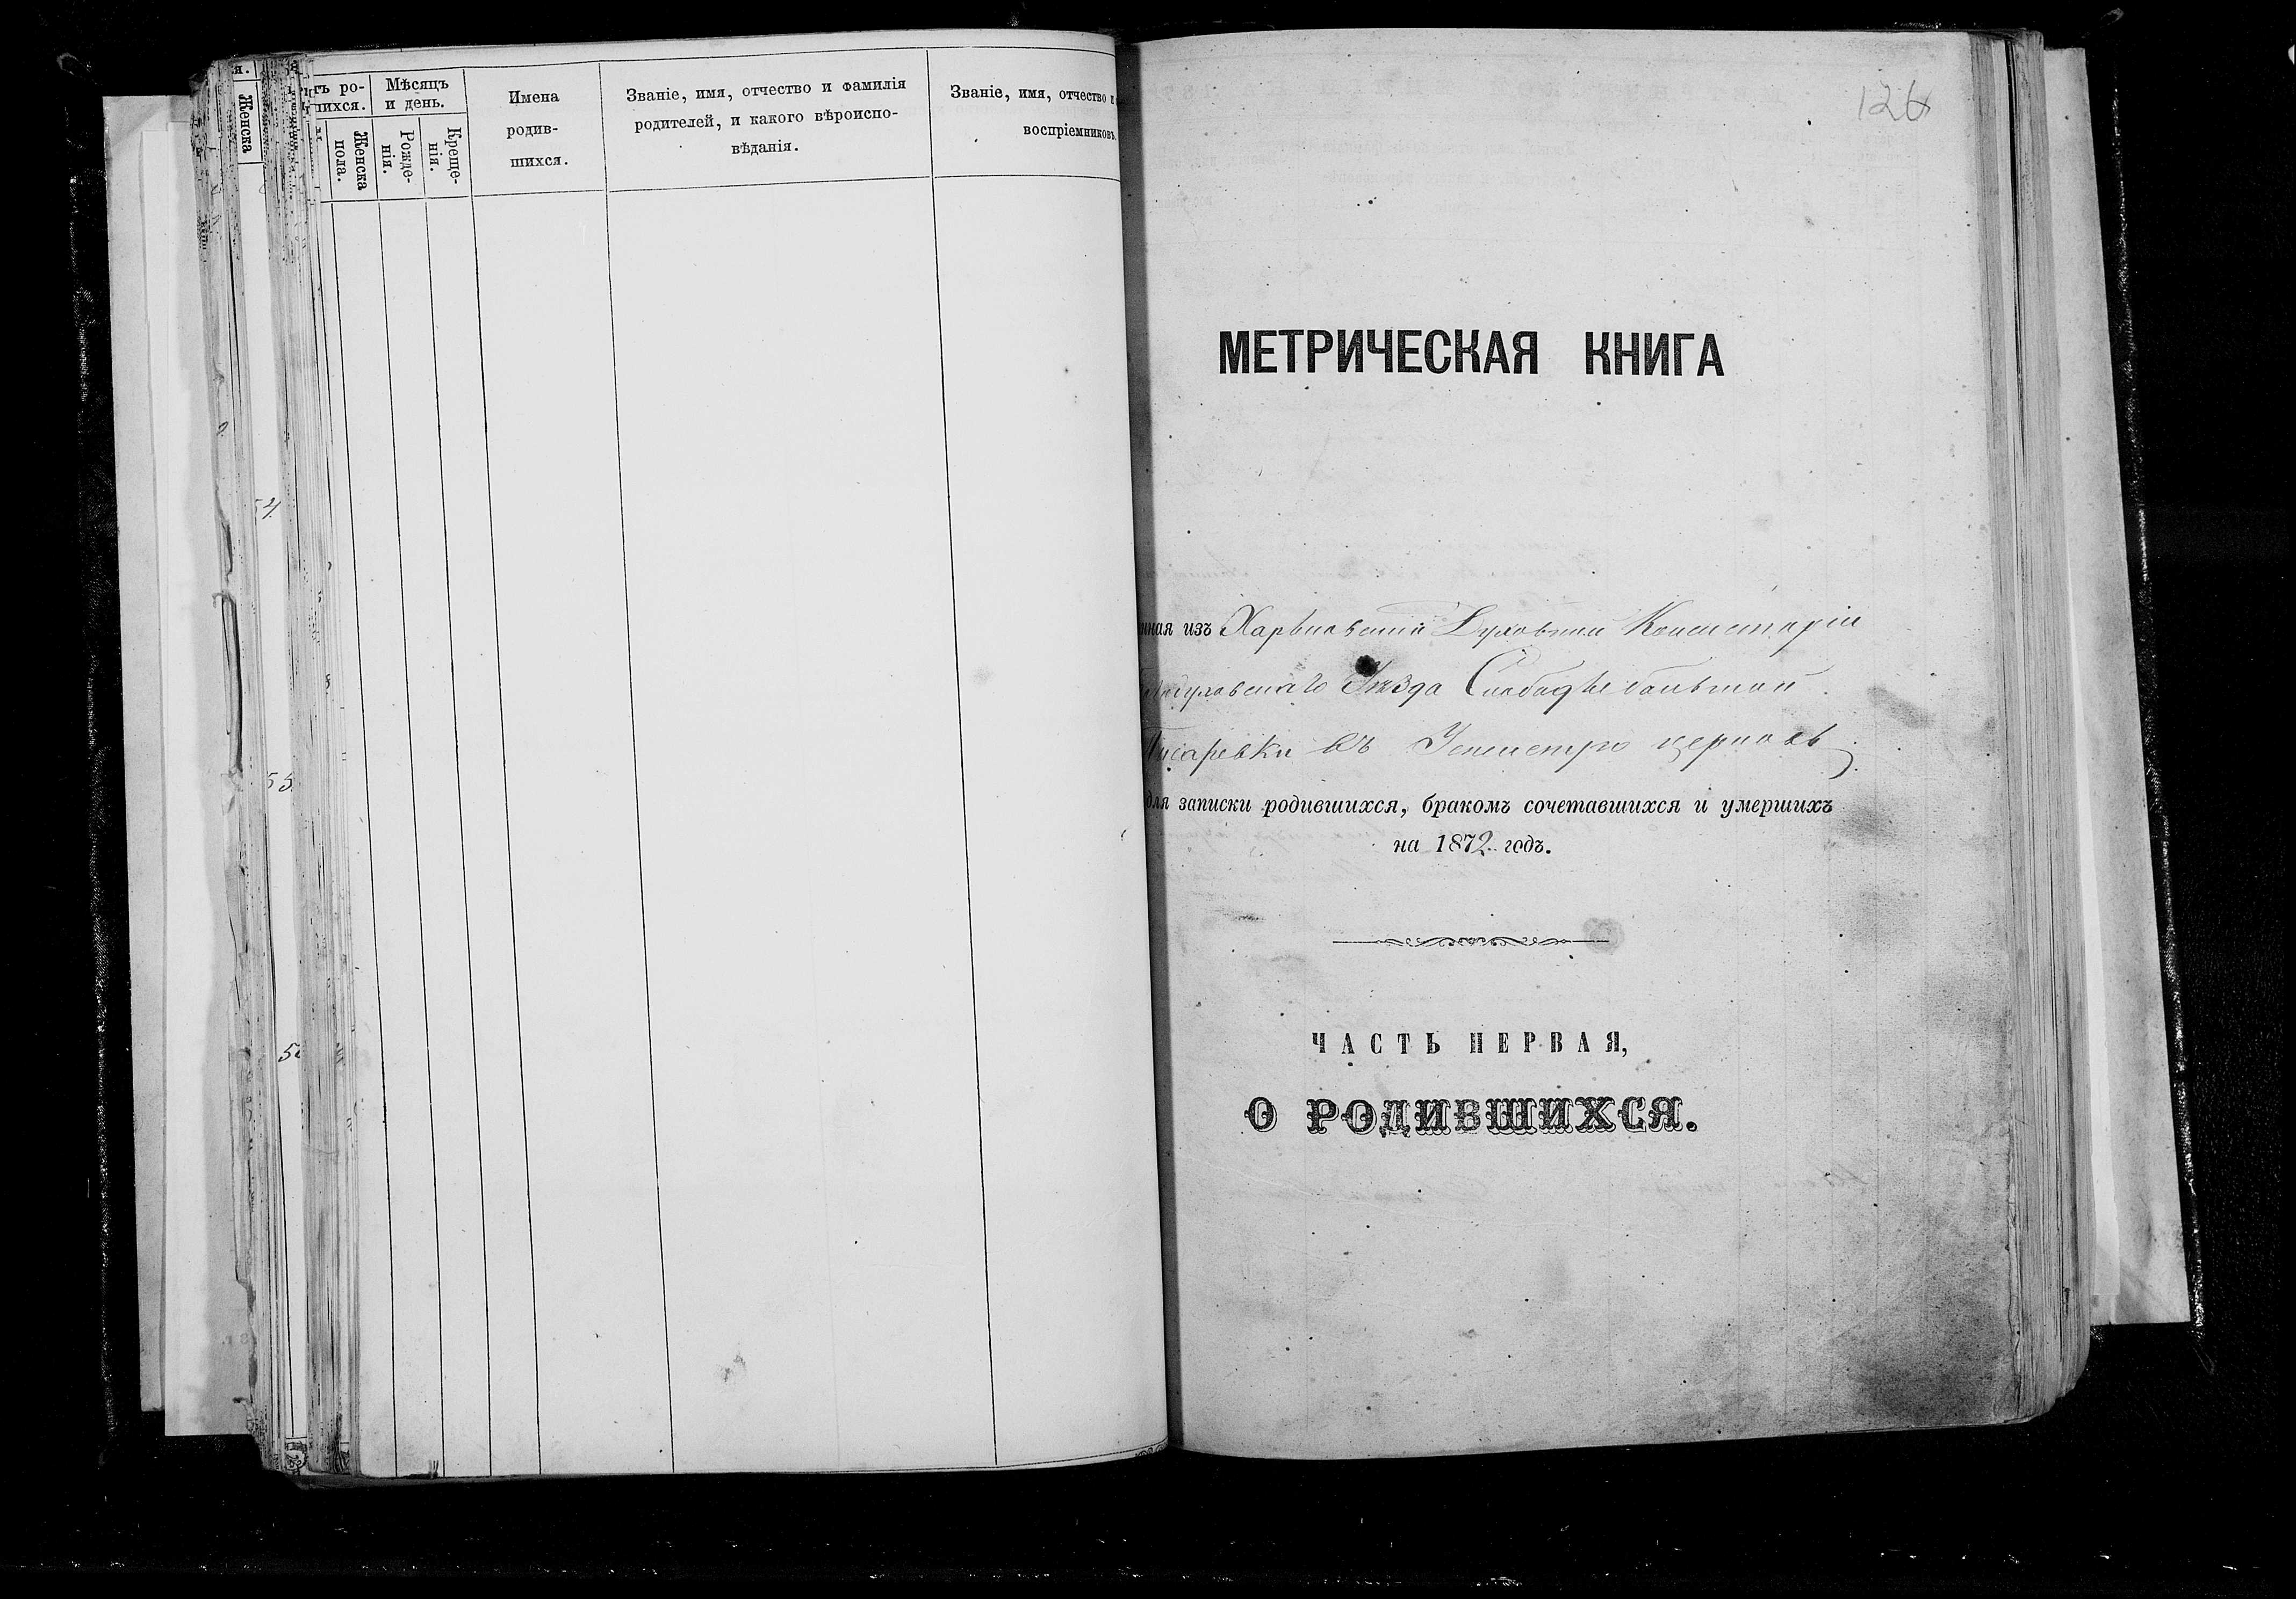 я.
Женска
гъ ро-
шихся.
Мѣсяцъ
и день.
Женска
пола.
Рожде-
нія.
Креще-
нія.
Имена
родив-
шихся.
Званіе, имя, отчество и фамилія
родителей, и какого вѣроиспо-
вѣданія.
Званіе, имя, отчество и
воспріемниковъ.
54.
55.
5
126
МЕТРИЧЕСКАЯ КНИГА
нная изъ Харьковской Духовной Консисторіи
Уѣзда Слободы большой
Писаревки въ церковь
для записки родившихся, бракомъ сочетавшихся и умершихъ
на 1872 годъ.
ЧАСТЬ ПЕРВАЯ,
О РОДИВШИХСЯ.